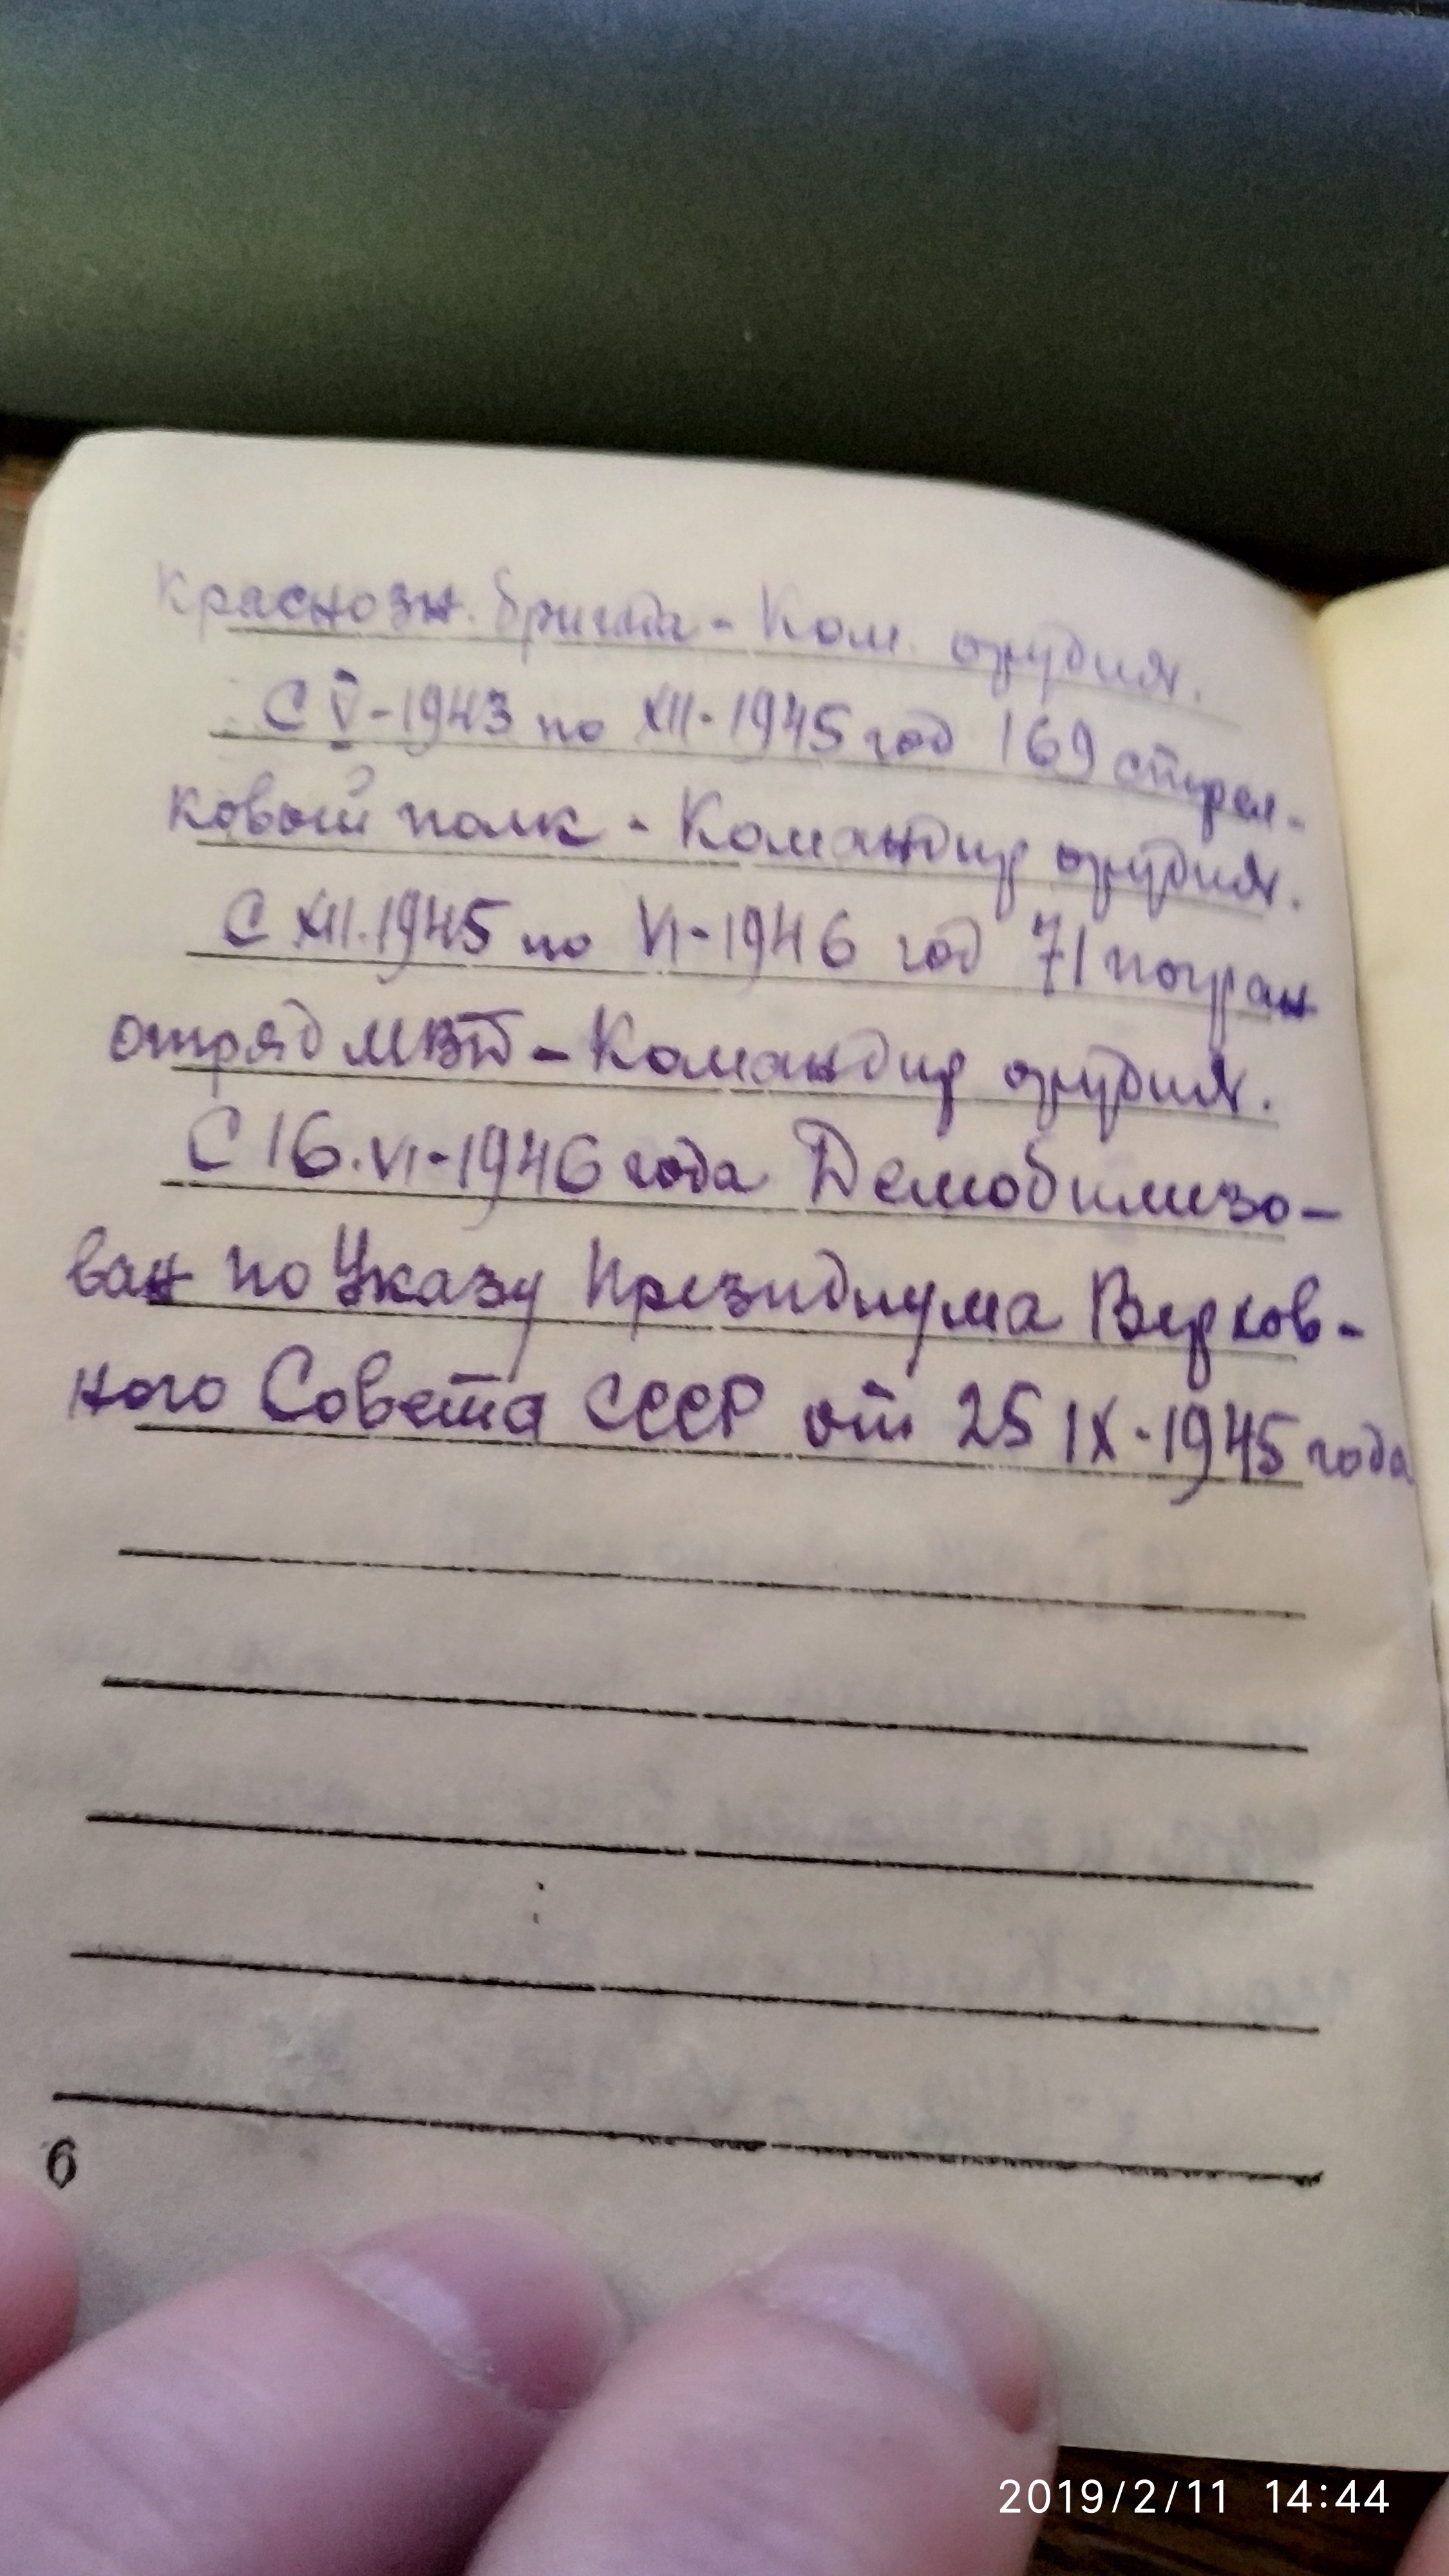 краснозн. бригада - Ком. орудия.
С V-1943 по XII-1945 год 169 стрел-
ковый полк - Командир орудия.
С XII.1945 по VI-1946 год 71 погран
отряд МВД - Командир орудия.
С 16.VI-1946 года Демобилизо-
ван по Указу Президиума Верхов-
ного Совета СССР от 25 IX-1945 года
6
2019/2/11 14:44